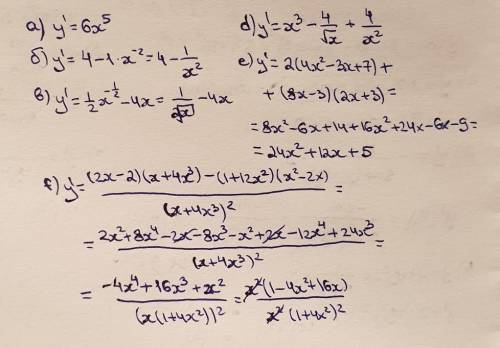 а) y' = 6x⁵
б) y' = 4 - 1·x⁻² = 4 - 1/x²
в) y' = 1/2 x^(-1/2) - 4x = 1/(2√x) - 4x
d) y' = x³ - 4/√x + 4/x²
e) y' = 2(4x² - 3x + 7) +
+ (8x - 3)(2x + 3) =
= 8x² - 6x + 14 + 16x² + 24x - 6x - 9 =
= 24x² + 12x + 5
f) y' = ((2x - 2)(x + 4x³) - (1 + 12x²)(x² - 2x))/(x + 4x³)² =
= (2x² + 8x⁴ - 2x - 8x³ - x² + 2x - 12x⁴ + 24x³)/(x + 4x³)² =
= (-4x⁴ + 16x³ + x²)/(x(1 + 4x²))² = x²(1 - 4x² + 16x)/x²(1 + 4x²)²